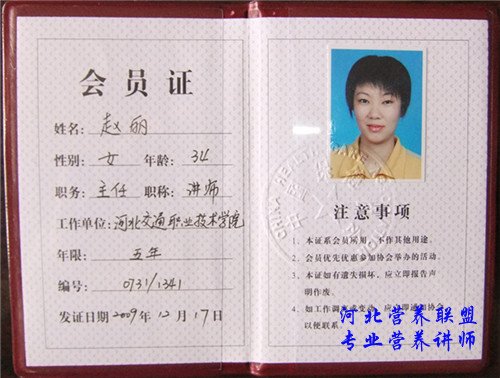 会员证
姓名：赵丽
性别：女 年龄：34
职务：主任 职称：讲师
工作单位：河北交通职业技术学院
年限：五年
编号：0731/1341
发证日期2009年12月17日
注意事项
1、本证系会员所用，不作其他用途。
2、会员优先优惠参加协会举办的活动。
3、本证如有遗失损坏，应立即报告声
明作废。
4、如工作调离或变动，应立即通知协会
以便联系。
河北营养联盟
专业营养讲师